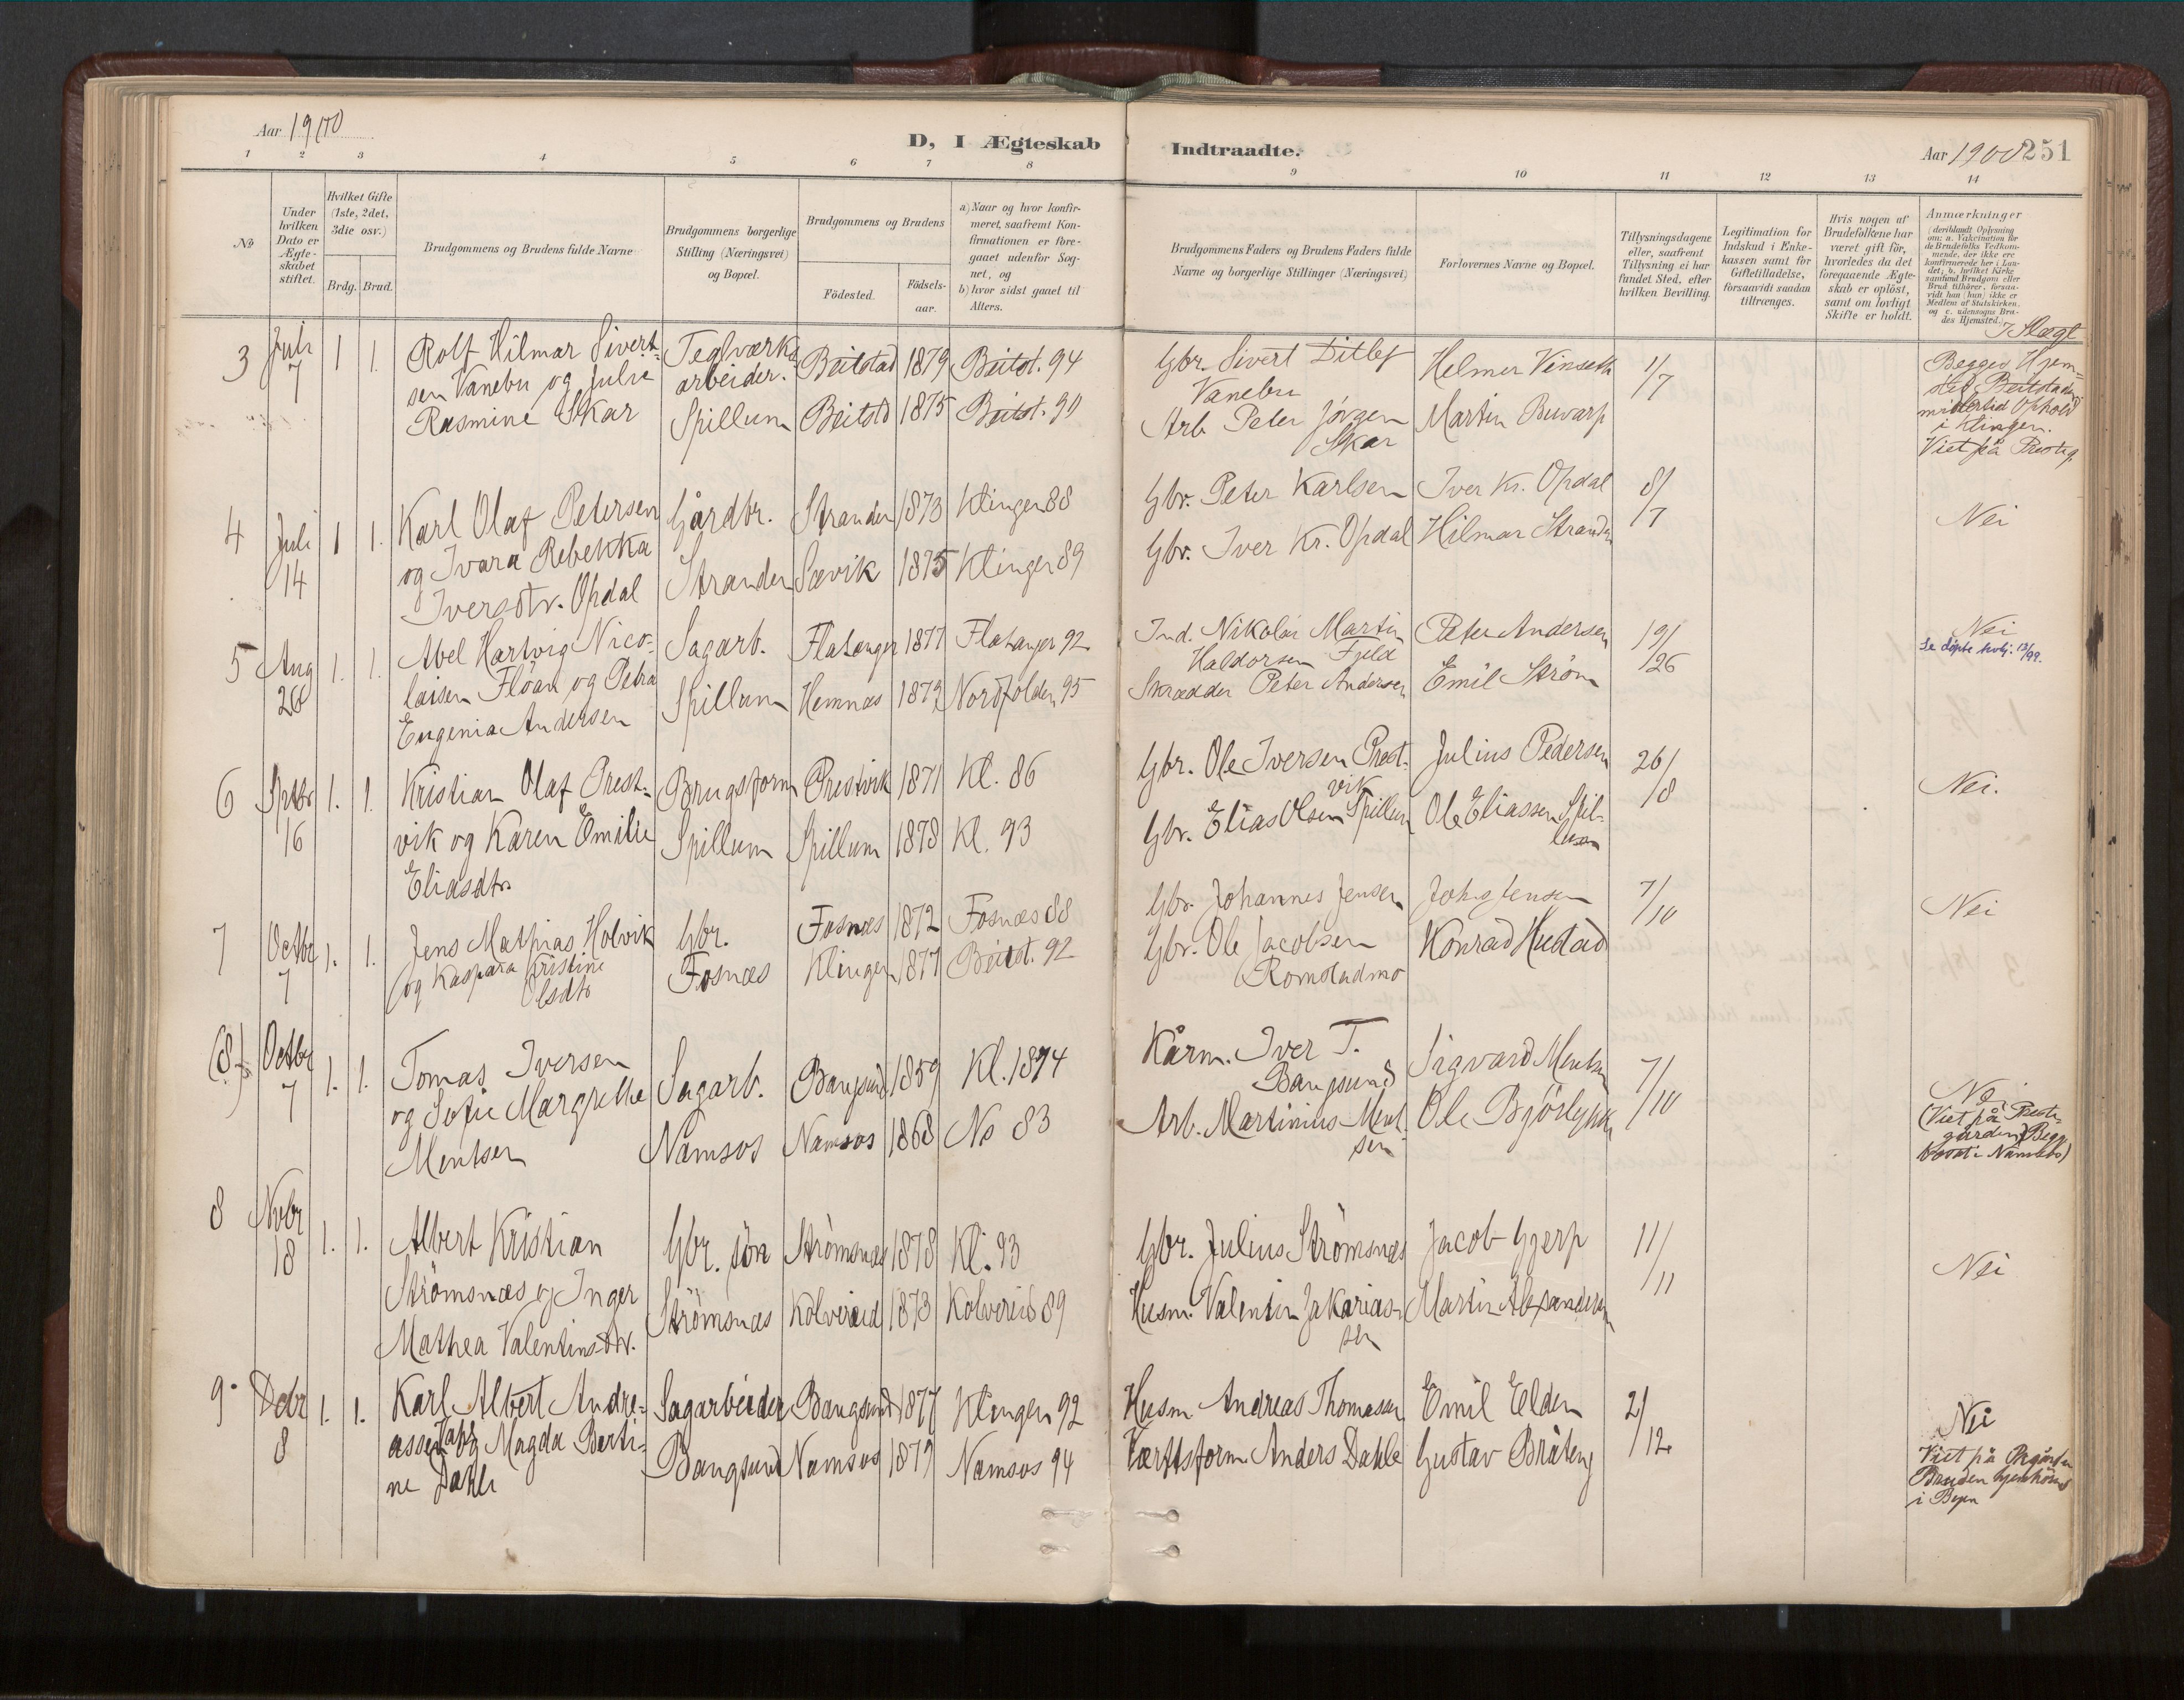 Aar 1900
D, I Ægteskab Indtraadte.
Aar 1900 251
1 2 3 4 5 6 7 8 9 10 11 12 13 14
No
Under hvilken Dato er Ægteskabet stiftet.
Hvilket Gifte (1ste, 2det, 3die osv.)
Brdg. Brud.
Brudgommens og Brudens fulde Navne
Brudgommens borgerlige Stilling (Næringsvei) og Bopæl.
Brudgommens og Brudens
Fødested.
Fødsels-aar.
a) Naar og hvor konfir-
meret, saafremt Kon-
firmationen er fore-
gaaet udenfor Sog-
net, og
b) hvor sidst gaaet til
Alters.
Brudgommens Faders og Brudens Faders fulde
Navne og borgerlige Stillinger (Næringsvei)
Forlovernes Navne og Bopæl.
Tillysningsdagene
eller, saafremt
Tillysning ei har
fundet Sted, efter
hvilken Bevilling.
Legitimation for
Indskud i Enke-
kassen samt for
Giftetilladelse,
forsaavidt saadan
tiltrænges.
Hvis nogen af
Brudefolkene har
været gift før,
hvorledes da det
foregaaende Ægte-
skab er opløst,
samt om lovligt
Skifte er holdt.
Anmærkninger
(deriblandt Oplysning
om: a. Vakcination for
de Brudefolks Vedkom-
mende, der ikke ere
konfirmerede her i Lan-
det; b. hvilket Kirke-
samfund Brudgom eller
Brud tilhører, forsaa-
vidt han (hun) ikke er
Medlem af Statskirken,
og c. udensogns Bru-
des Hjemsted.)
I Slægt
3 Juli 7 1 1. Rolf Hilmar Sivert-
sen Vanebu og Julie
Rasmine Skar
Teglværks
arbeider.
Spillum
Beitstad 1879 Beitst. 94
Beitstd 1875 Beitst. 90
Gbr. Sivert Ditlef
Vanebu
Arb. Peter Jörgen
Skar
Helmer Vinseth
Martin Buvarp
1/7
Begges Hjem-
sted Beitstaden
midlertid Ophold
i Klingen.
Viet på Prestg.
4 Juli 14 1 1. Karl Olaf Petersen
og Ivara Rebekka
Iversdtr. Opdal
Gårdbr.
Stranden
Stranden 1873 Klingen 88
Sævik 1875 Klingen 89
Gbr. Peter Karlsen
Gbr. Iver Kr. Opdal
Iver Kr. Opdal
Hilmar Stranden
8/7
Nei
5 Aug 26 1. 1. Abel Hartvig Nico-
laisen Flöan og Petra
Eugenia Andersen
Sagarb.
Spillum
Flatanger 1877 Flatanger 92
Hemnæs 1879 Nordfolden 95
Ind. Nikolai Martin
Haldorsen Fjeld
Skrædder Peter Andersen
Peter Andersen
Emil Ström
19/26
Nei
Se döpte 13/99.
6 Sptbr 16 1. 1. Kristian Olaf Prest-
vik og Karen Emilie
Eliasdtr
Brugsform
Spillum
Prestvik 1871 Kl. 86
Spillum 1878 Kl. 93
Gbr. Ole Iversen Prest-
vik
Gbr. Elias Olsen Spillum
Julius Pedersen
Ole Eliassen Spil-
lum
26/8
Nei.
7 Octbr 7 1. 1. Jens Mathias Holvik
og Kaspara Kristine
Olsdtr
Gbr.
Fosnæs
Fosnæs 1872 Fosnæs 88
Klingen 1877 Beitst. 92
Gbr. Johannes Jensen
Gbr. Ole Jacobsen
Romstadmo
Johs Jensen
Konrad Hustad
7/10
Nei
(8) Octbr 7 1. 1. Tomas Iversen
og Sofie Margrethe
Mentsen
Sagarb.
Namsos
Bangsund 1859 Kl. 1874
Namsos 1868 Ns 83
Kårm. Iver T.
Bangsund
Arb. Martinius Ment-
sen
Sigvard Mentsen
Ole Björlykke
7/10
Nei
(Viet på Prest-
gården. Begge
Namsos)
8 Nvbr 18 1. 1. Albert Kristian
Strömsnæs og Inger
Mathea Valentinsdtr.
Gbr. sön
Strömsnæs
Strömsnæs 1878 Kl. 93
Kolvereid 1873 Kolvereid 89
Gbr. Julius Strömsnæs
Husm. Valentin Zakarias-
sen
Jacob Gjerp
Martin Alexandersen
11/11
Nei
9. Dcbr 8 1. 1. Karl Albert Andre-
assen og Magda Berti-
ne Dahle
Sagarbeider
Bangsund
Bangsund 1877 Klingen 92
Namsos 1879 Namsos 94
Husm. Andreas Thomassen
Værksform. Anders Dahle
Emil Elden
Gustav Bråten
2/12
Nei
Viet på Prgården
Bruden hjemhörende
i Byen